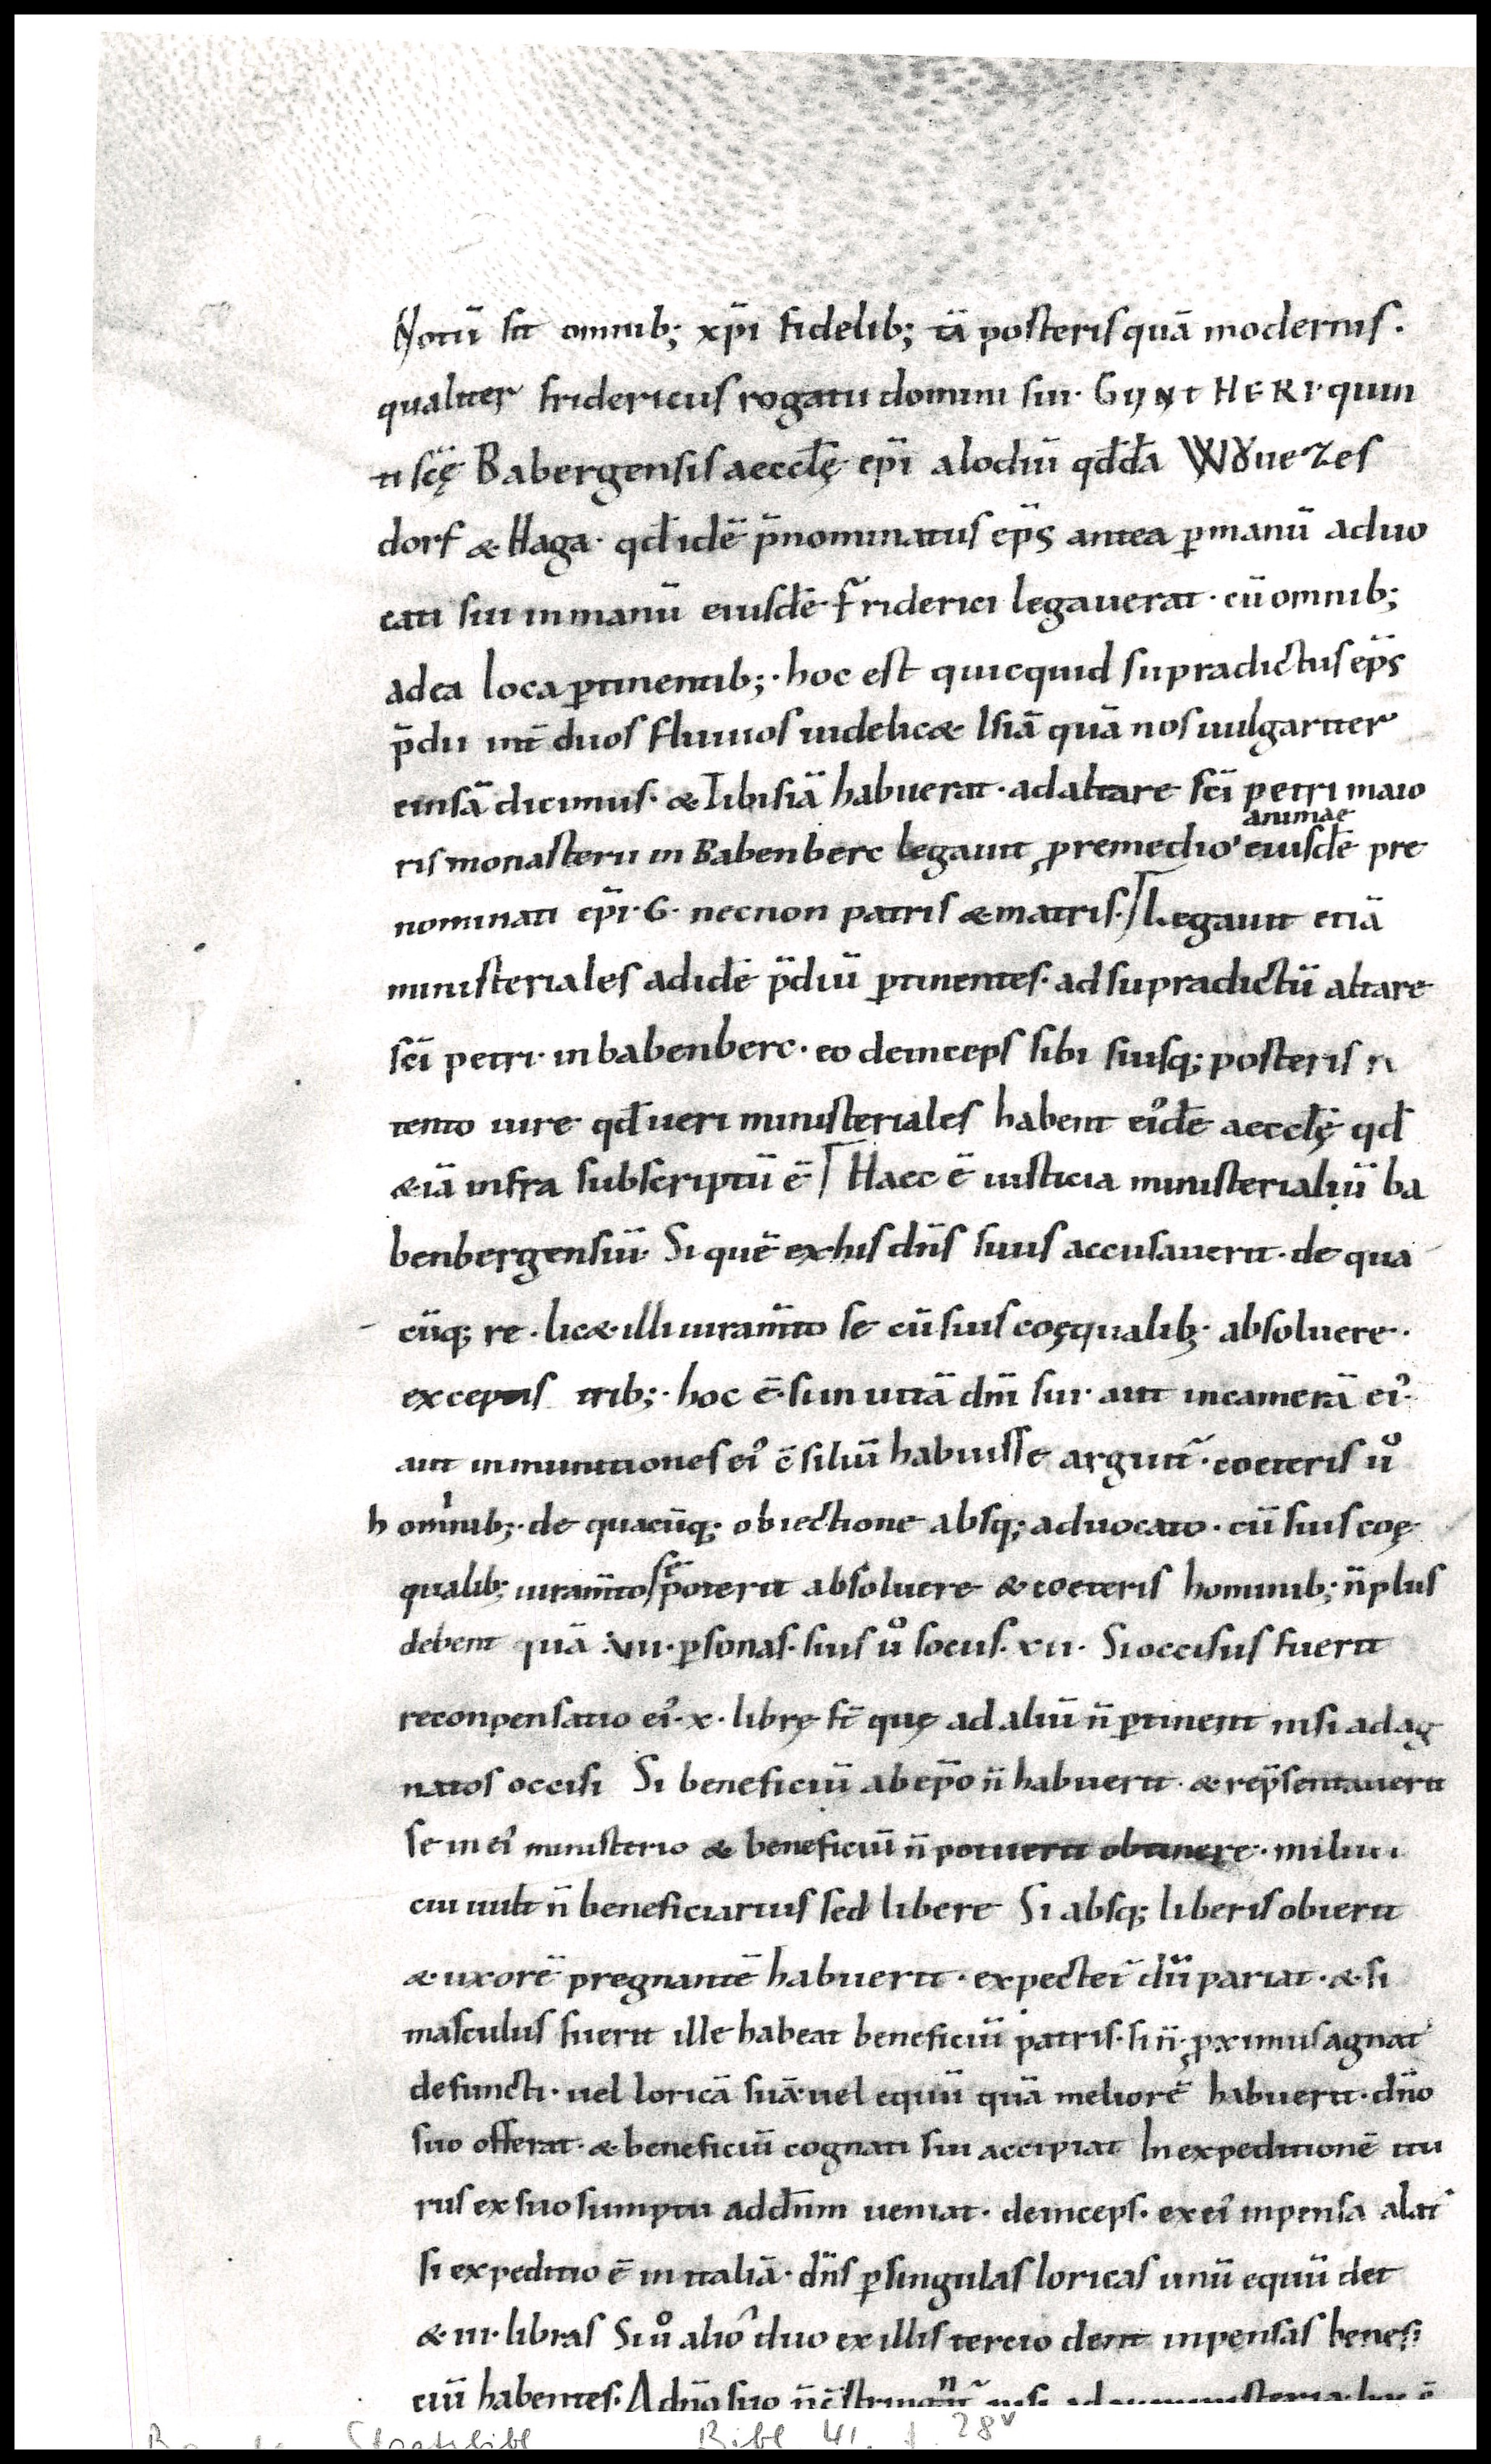 Notū sit omnib; xp̄i fidelib; tā posteris quā modernis.
qualiter fridericus rogatu domini sui· GUNtHERI· quin
ti scę̄ Babergensis aecclę̄ ep̄i alodiū qd̄dā
dorf & Haga· qd̄ idē p̄nominatus ep̄s antea p̲ manū aduo
cati sui in manū eiusdē friderici legauerat· cū omnib;
ad ea loca p̲tinentib;· hoc est quicquid supradictus ep̄s
p̄dii int̄ duos fluuios uidelic& Isiā quā nos uulgariter
einsā dicimus· & Tibisiā habuerat· ad altare sc̄i petri maio
animae
ris monasterii in Babenberc legauit ꝓ remedio eiusdē pre
nominati ep̄i· G· necnon patris & matris· Legauit etiā
ministeriales ad idē p̄diū p̲tinentes· ad supradictū altare
sc̄i petri· in babenberc· eo deinceps sibi suisq; posteris
tento iure qd̄ ueri ministeriales habent ei᾽dē aecclę̄ qd̄
&iā infra subscriptū ē Haec ē iusticia ministerialiū ba
benbergensiū· Si quē ex his dn̄s suus accusauerit· de qua
cūq; re· lic& illi iuram̄to se cū suis coęqualib;· absoluere·
exceptis trib;· hoc ē· si in uitā dn̄i sui· aut in camerā ei᾽·
aut in munitiones ei᾽ c̄siliū habuisse arguit᷑· coeteris uº
hominib;· de quacūq; obiectione absq; aduocato· cū suis coę
sē
qualib; iuram̄to poterit absoluere & coeteris hominib; n̄ plus
debent quā ·VII· p̲sonas· suis uº sociis· XII· Si occisus fuerit
reconpensatio ei᾽· X· librę st̄ quę ad aliū n̄ p̲tinent nisi ad ag
natos occisi Si beneficiū ab ep̄o n̄ habuerit· & rep̄sentauerit
se in ei᾽ ministerio & beneficiū n̄ potuerit obtinere·
cui uult n̄ beneficiarius sed libere Si absq; liberis obierit
& uxorē pregnantē habuerit· expectet᷑ dū pariat· & si
masculus fuerit ille habeat beneficiū patris· si n̄· ꝓximus agnat᾽
defuncti· uel loricā suā· uel equū quā meliorē habuerit· dn̄o
suo offerat· & beneficiū cognati sui accipiat In expeditionē itu
rus ex suo sumptu ad dn̄m ueniat· deinceps· ex ei᾽ inpensa alat᷑
si expeditio ē in italiā· dn̄s p̲ singulas loricas unū equū det
& III· libras Si uº alio᾽ duo ex illis tercio dent inpensas benefi
ciū habentes· A dn̄o suo n̄
Staatsbibl Bibl 41, f. 28v